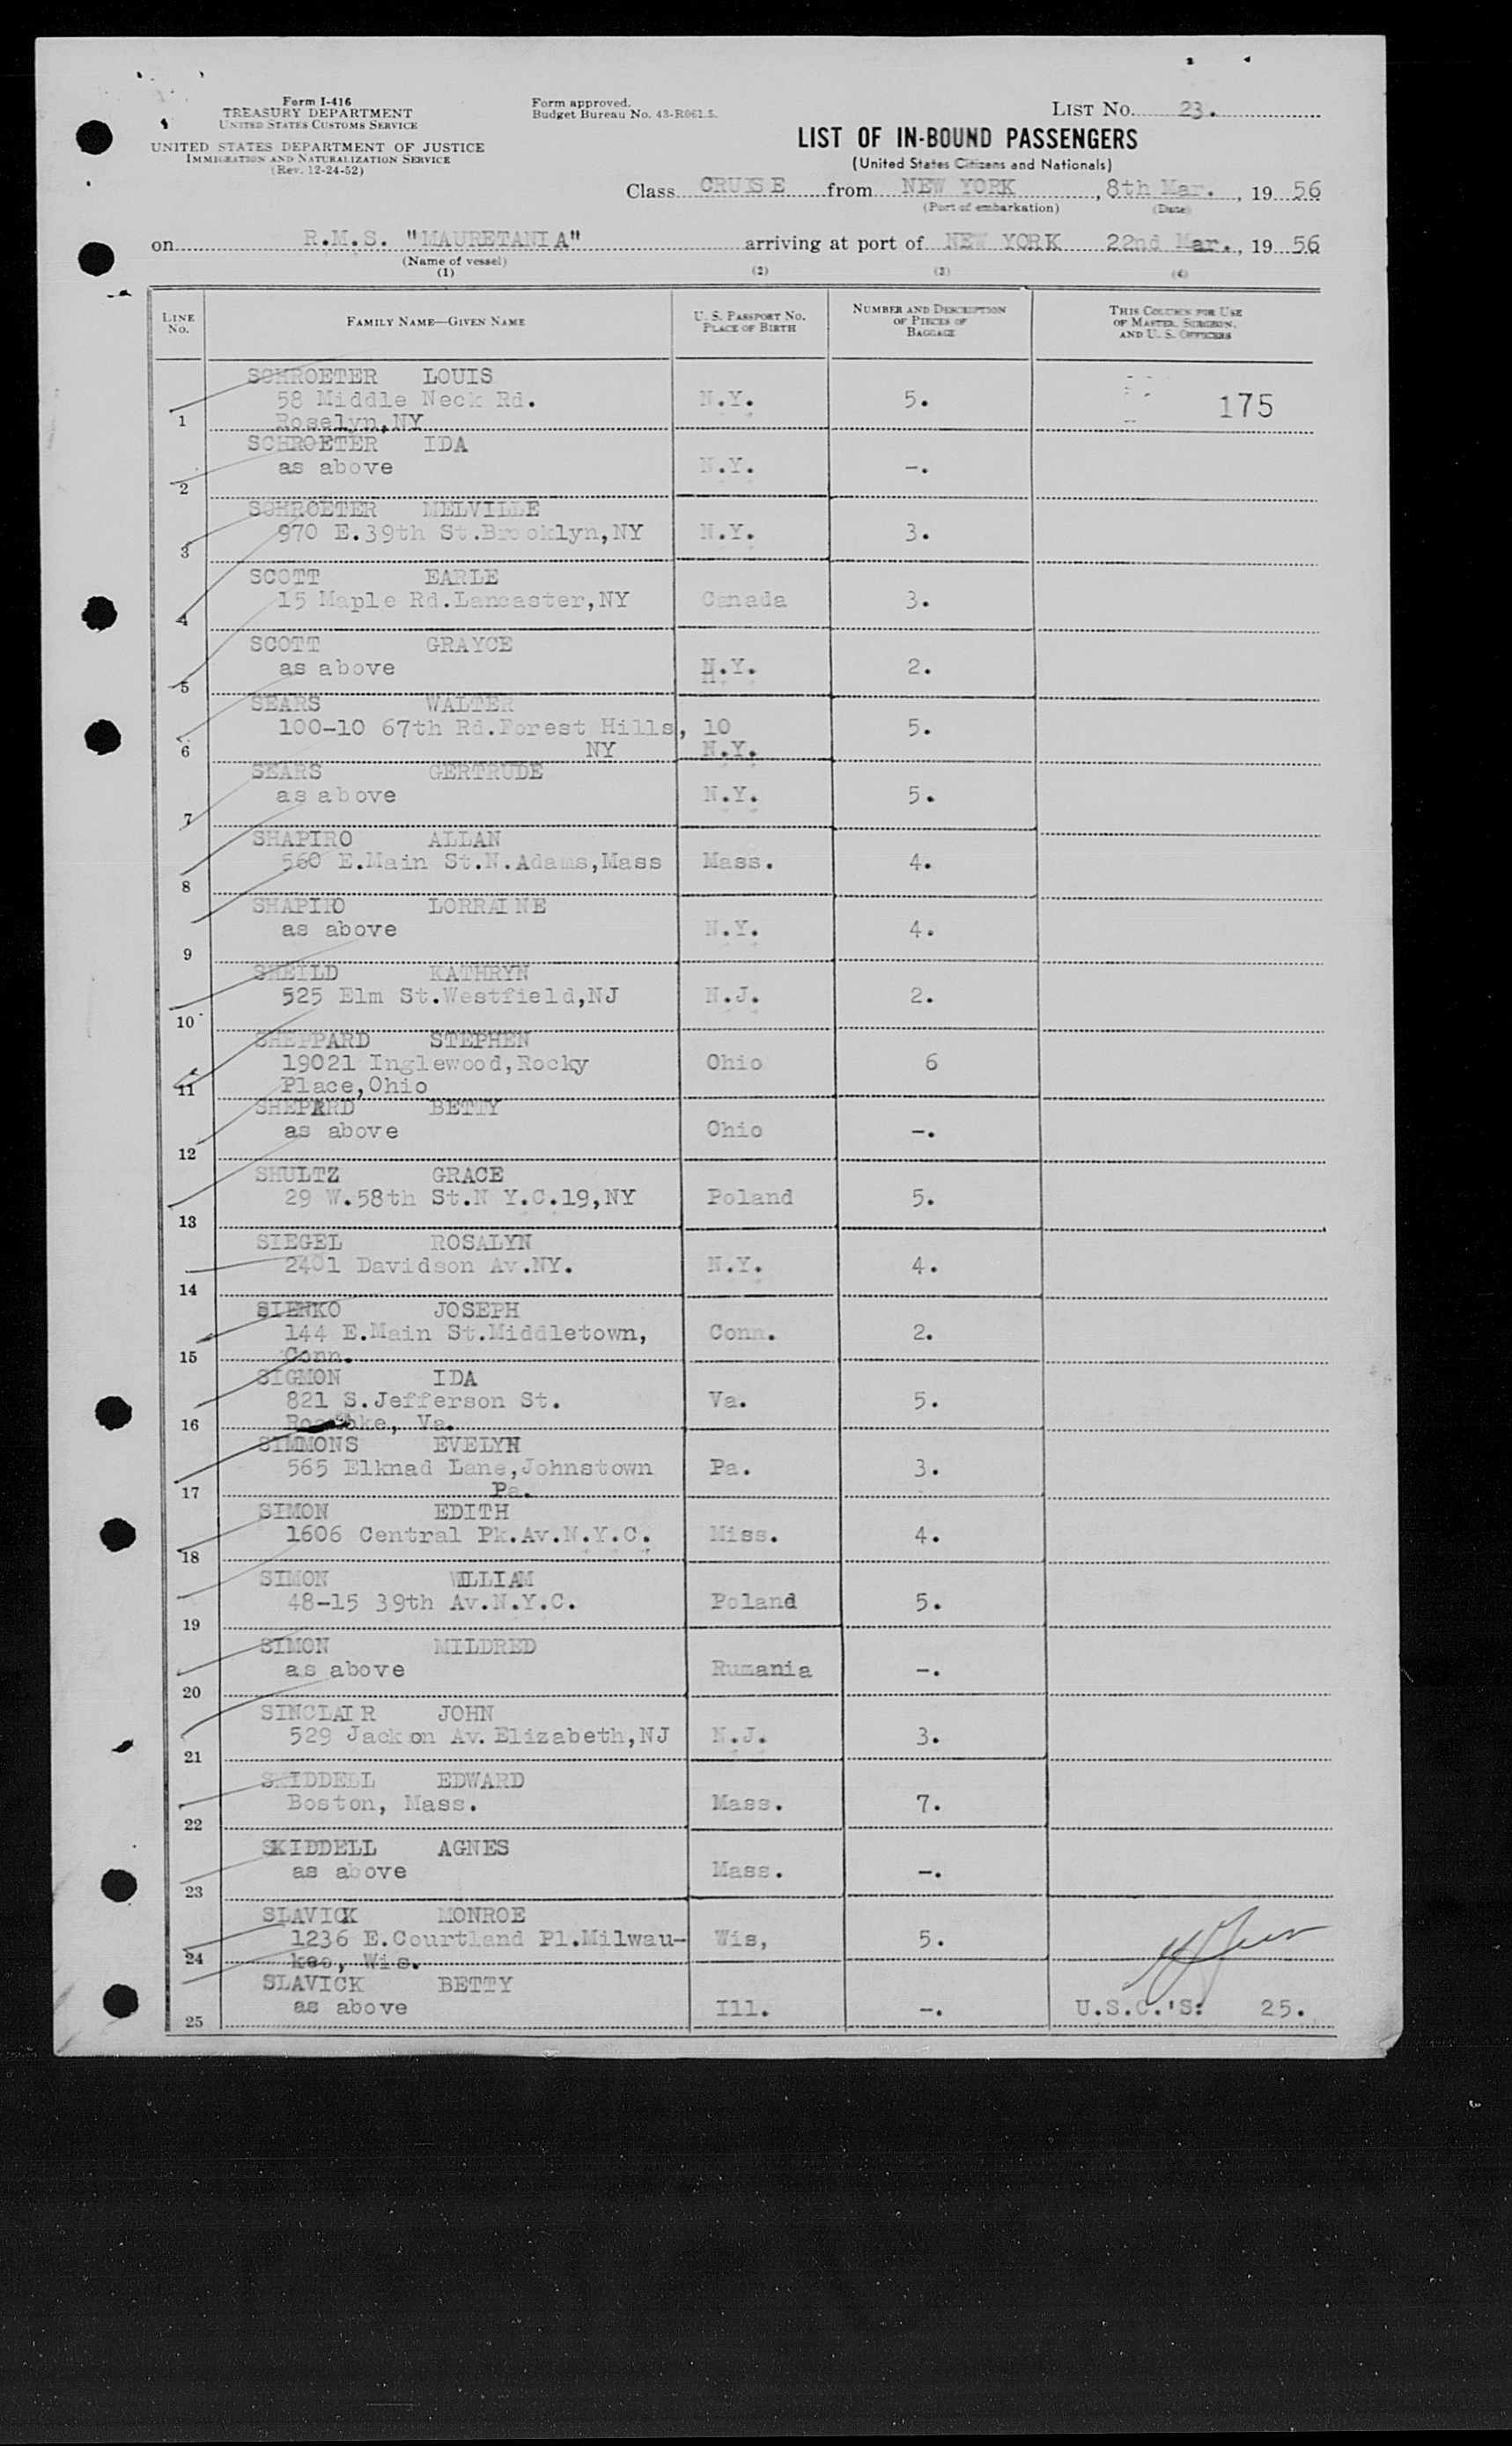 Form I-416
TREASURY DEPARTMENT
UNITED STATES CUSTOMS SERVICE
UNITED STATES DEPARTMENT OF JUSTICE
IMMIGRATION AND NATURALIZATION SERVICE
(Rev. 12-24-52)
Form approved.
Budget Bureau No. 43-R061.5.
LIST No. 23.
LIST OF IN-BOUND PASSENGERS
(United States Citizens and Nationals)
Class CRUISE from NEW YORK, 8th Mar., 19 56
(Port of embarkation) (Date)
on R.M.S. "MAURETANIA" arriving at port of NEW YORK 22nd Mar., 19 56
(Name of vessel)
(1) (2) (3) (4)
LINE No. FAMILY NAME—GIVEN NAME U. S. PASSPORT NO. PLACE OF BIRTH NUMBER AND DESCRIPTION OF PIECES OF BAGGAGE THIS COLUMN FOR USE OF MASTER, SURGEON, AND U. S. OFFICERS
SCHROETER LOUIS
58 Middle Neck Rd. N.Y. 5. 175
1 Roselyn,NY
SCHROETER IDA
as above N.Y. -.
2
SCHROETER MELVILLE
970 E.39th St.Brooklyn,NY N.Y. 3.
3
SCOTT EARLE
15 Maple Rd.Lancaster,NY Canada 3.
4
SCOTT GRAYCE
as above N.Y. 2.
5
SEARS WALTER
100-10 67th Rd.Forest Hills, 10 5.
6 NY N.Y.
SEARS GERTRUDE
as above N.Y. 5.
7
SHAPIRO ALLAN
560 E.Main St.N.Adams,Mass Mass. 4.
8
SHAPIRO LORRAINE
as above N.Y. 4.
9
SHEILD KATHRYN
525 Elm St.Westfield,NJ N.J. 2.
10
SHEPPARD STEPHEN
19021 Inglewood,Rocky Ohio 6
11 Place,Ohio
SHEPARD BETTY
as above Ohio -.
12
SHULTZ GRACE
29 W.58th St.N Y.C.19,NY Poland 5.
13
SIEGEL ROSALYN
2401 Davidson Av.NY. N.Y. 4.
14
SIENKO JOSEPH
144 E.Main St.Middletown, Conn. 2.
15 Conn.
SIGMON IDA
821 S.Jefferson St. Va. 5.
16 Va.
SIMMONS EVELYN
565 Elknad Lane,Johnstown Pa. 3.
17 Pa.
SIMON EDITH
1606 Central Pk.Av.N.Y.C. Miss. 4.
18
SIMON WILLIAM
48-15 39th Av.N.Y.C. Poland 5.
19
SIMON MILDRED
as above Rumania -.
20
SINCLAIR JOHN
529 Jackson Av.Elizabeth,NJ N.J. 3.
21
SKIDDELL EDWARD
Boston, Mass. Mass. 7.
22
SKIDDELL AGNES
as above Mass. -.
23
SLAVICK MONROE
1236 E.Courtland Pl.Milwau- Wis, 5.
24 kee, Wis.
SLAVICK BETTY
as above Ill. -. U.S.C.'S: 25.
25